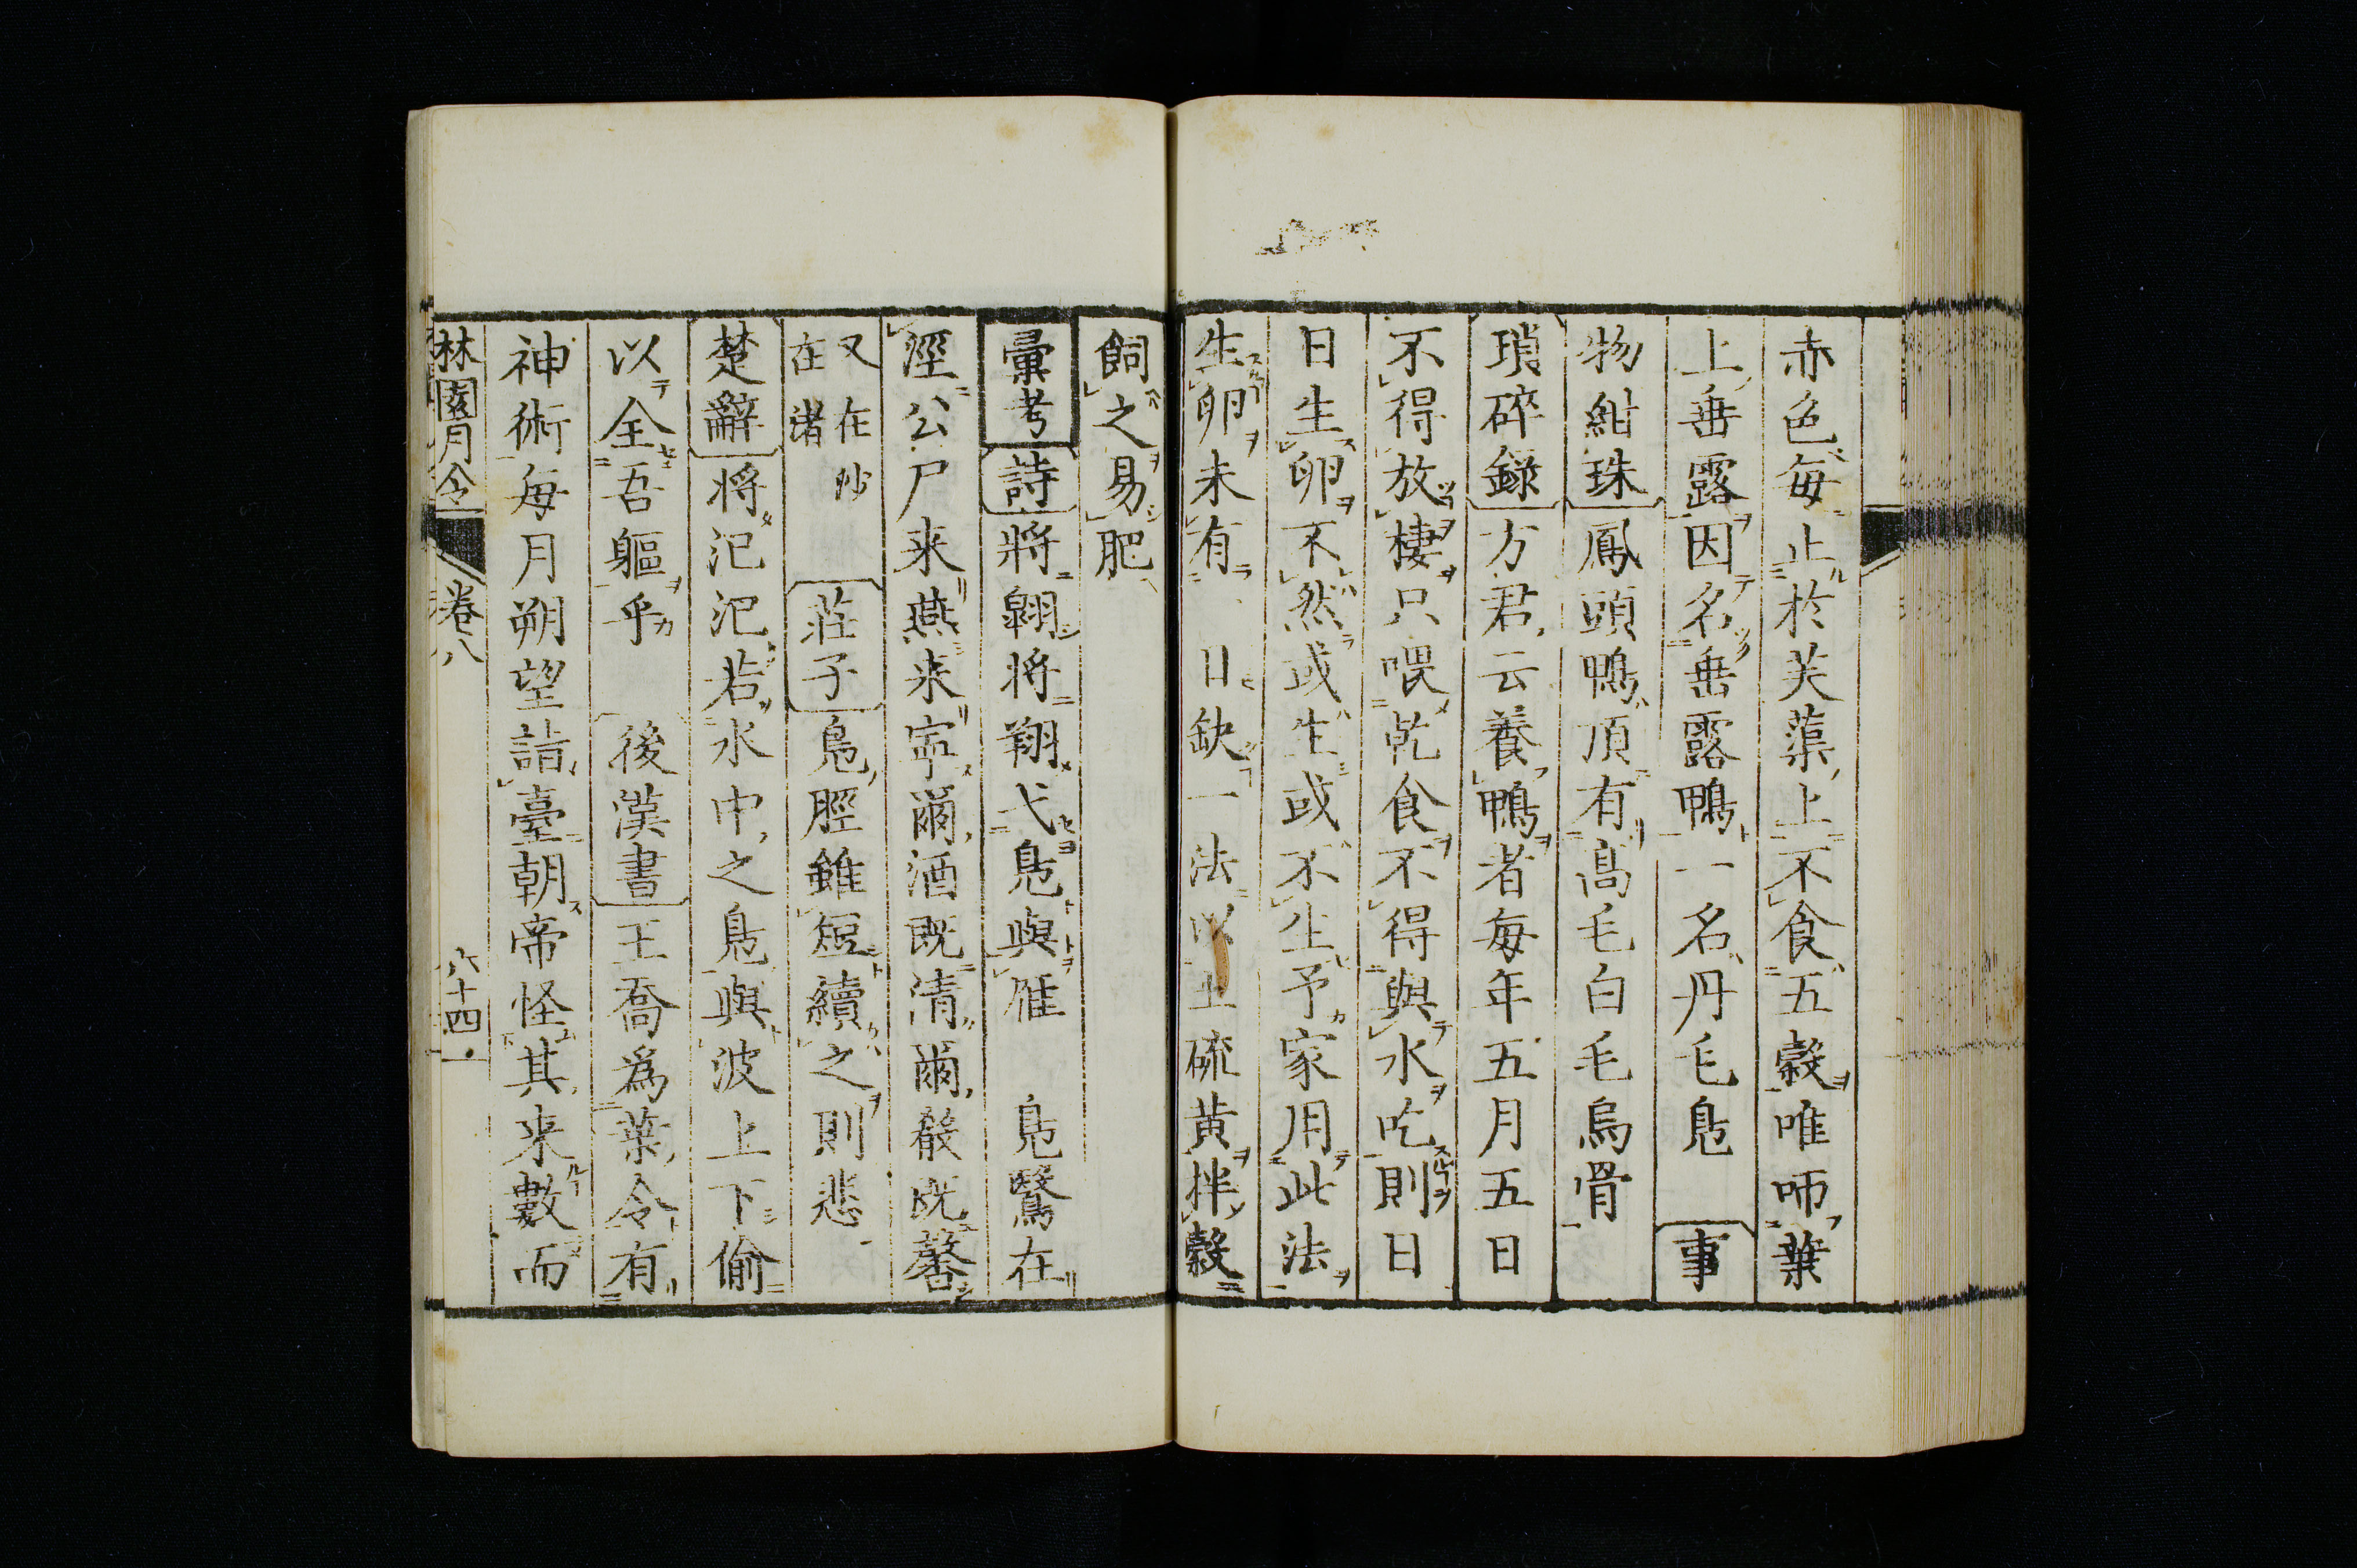 赤色每止於芙蕖上不食五穀唯啼葉
上垂露因名垂露鴨一名丹毛鳧 事
物紺珠 鳳頭鴨頂有高毛白毛烏骨
瑣碎錄 方君云養鴨者每年五月五日
不得放棲只喂乾食不得與水吃則日
日生卵不然或生或不生予家用此法
生卵未有 日缺一法以土硫黄拌穀
飼之易肥
彙考 詩 將翱将翔弋鳧與雁 鳧鷖在
涇公尸来燕来寧爾酒既清爾殽既馨
又在沙
在渚
莊子 鳧脛雖短續之則悲
楚辭 将氾氾若水中之鳧與波上下偷
以全吾軀乎 後漢書 王喬爲葉令有
神術每月朔望詣臺朝帝怪其来數而
林園月令 卷八 六十四